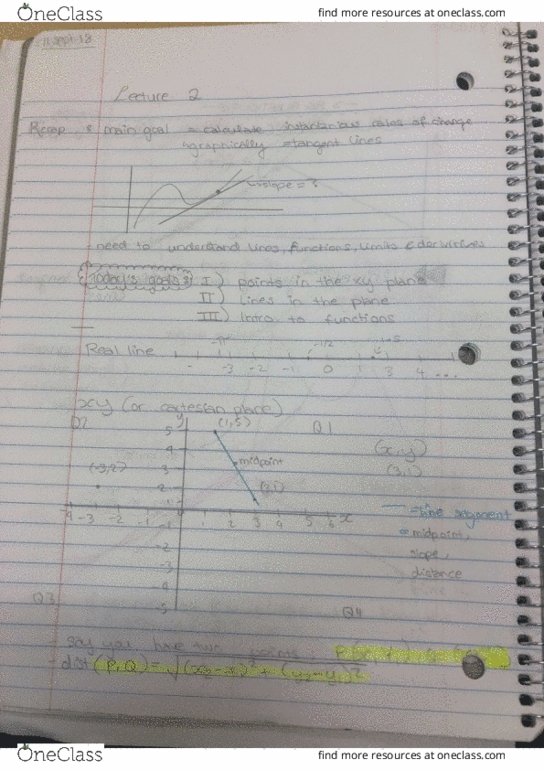 OneClass find more resources at oneclass.com
11 Sept 18
Lecture 2
Recap: main goal = calculate instantanious rates of change
graphically = tangent lines
slope = ?
need to understand lines, functions, limits & derivitives
Today's goals I) points in the xy plane
II) lines in the plane
III) Intro. to functions
-π -1/2
Real line
-3 -2 -1 0 3 4 ...
xy (or cartesian plane)
Q2 y (1,5) Q1
5
4 (x,y)
(-3,2) 3 midpoint (3,1)
2 (3,1)
1
-4 -3 -2 -1 1 2 3 4 5 6 x = line segment
-1 = midpoint,
-2 slope,
-3 distance
-4
Q3 -5 Q4
say you have two points:
dist (P,Q) = √(x₂-x₁)² + (y₂-y₁)²
OneClass find more resources at oneclass.com